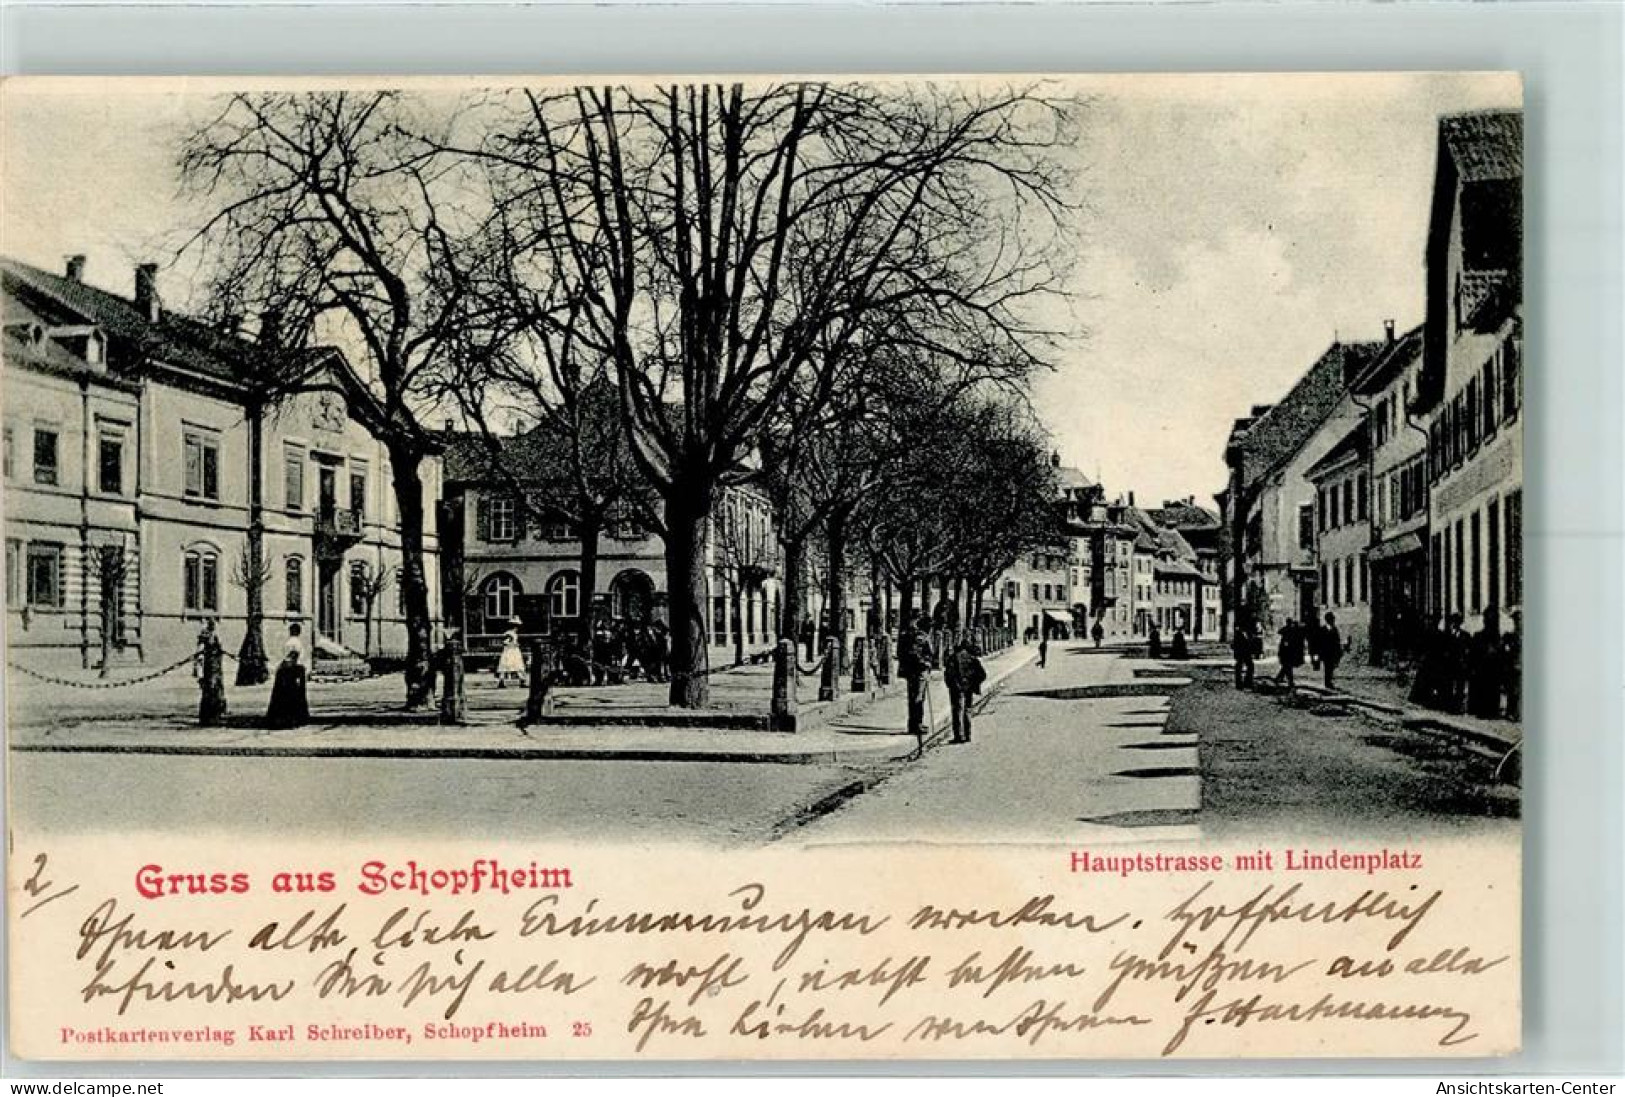 2
Gruss aus Schopfheim
Hauptstrasse mit Lindenplatz
Ihnen alte, liebe Erinnerungen wecken. Hoffentlich
befinden Sie sich alle wohl, nebst besten Grüßen an alle
Ihre Lieben von Ihrem J. Hartmann
Postkartenverlag Karl Schreiber, Schopfheim 25
delcampe.net
Ansichtskarten-Center